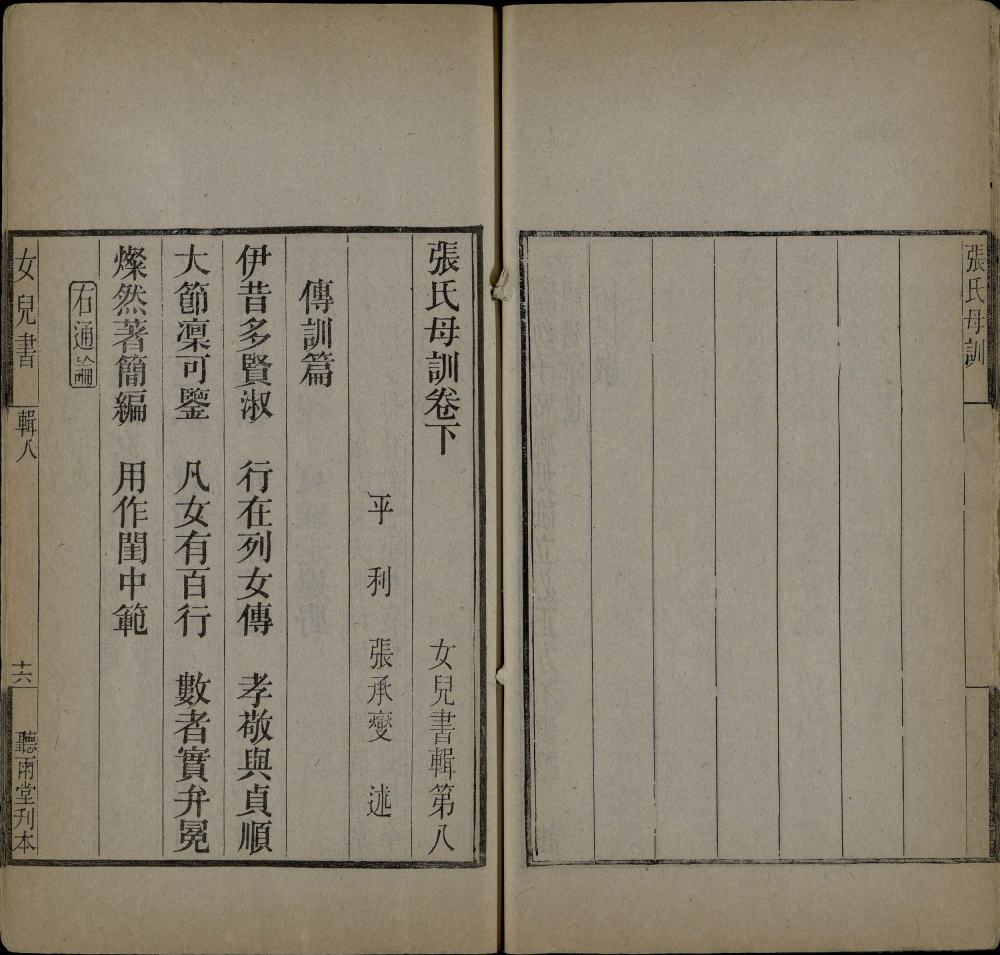 張氏母訓
張氏母訓卷下 女兒書輯第八
平利 張承燮 述
傳訓篇
伊昔多賢淑 行在列女傳 孝敬與貞順
大節凜可鑒 凡女有百行 數者實弁冕
燦然著簡編 用作閨中範
右通論
女兒書 輯八 十六 聽雨堂刊本